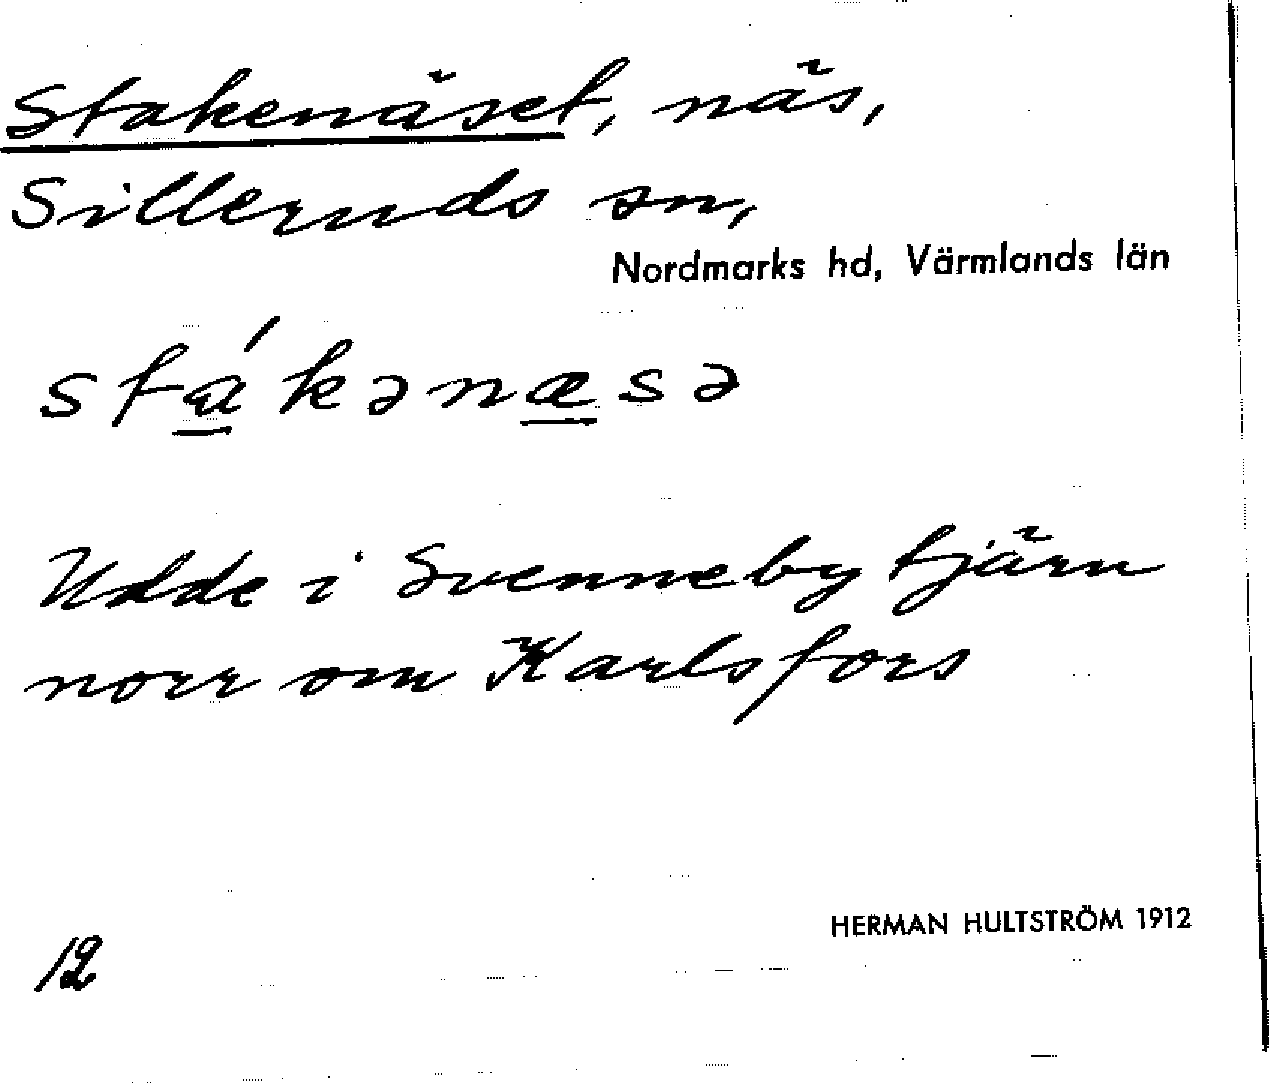 Stakenäset, näs,
Silleruds sn,
Nordmarks hd, Värmlands län
stákənæsə
Udde i Svenneby tjärn
norr om Karlsfors
HERMAN HULTSTRÖM 1912
12